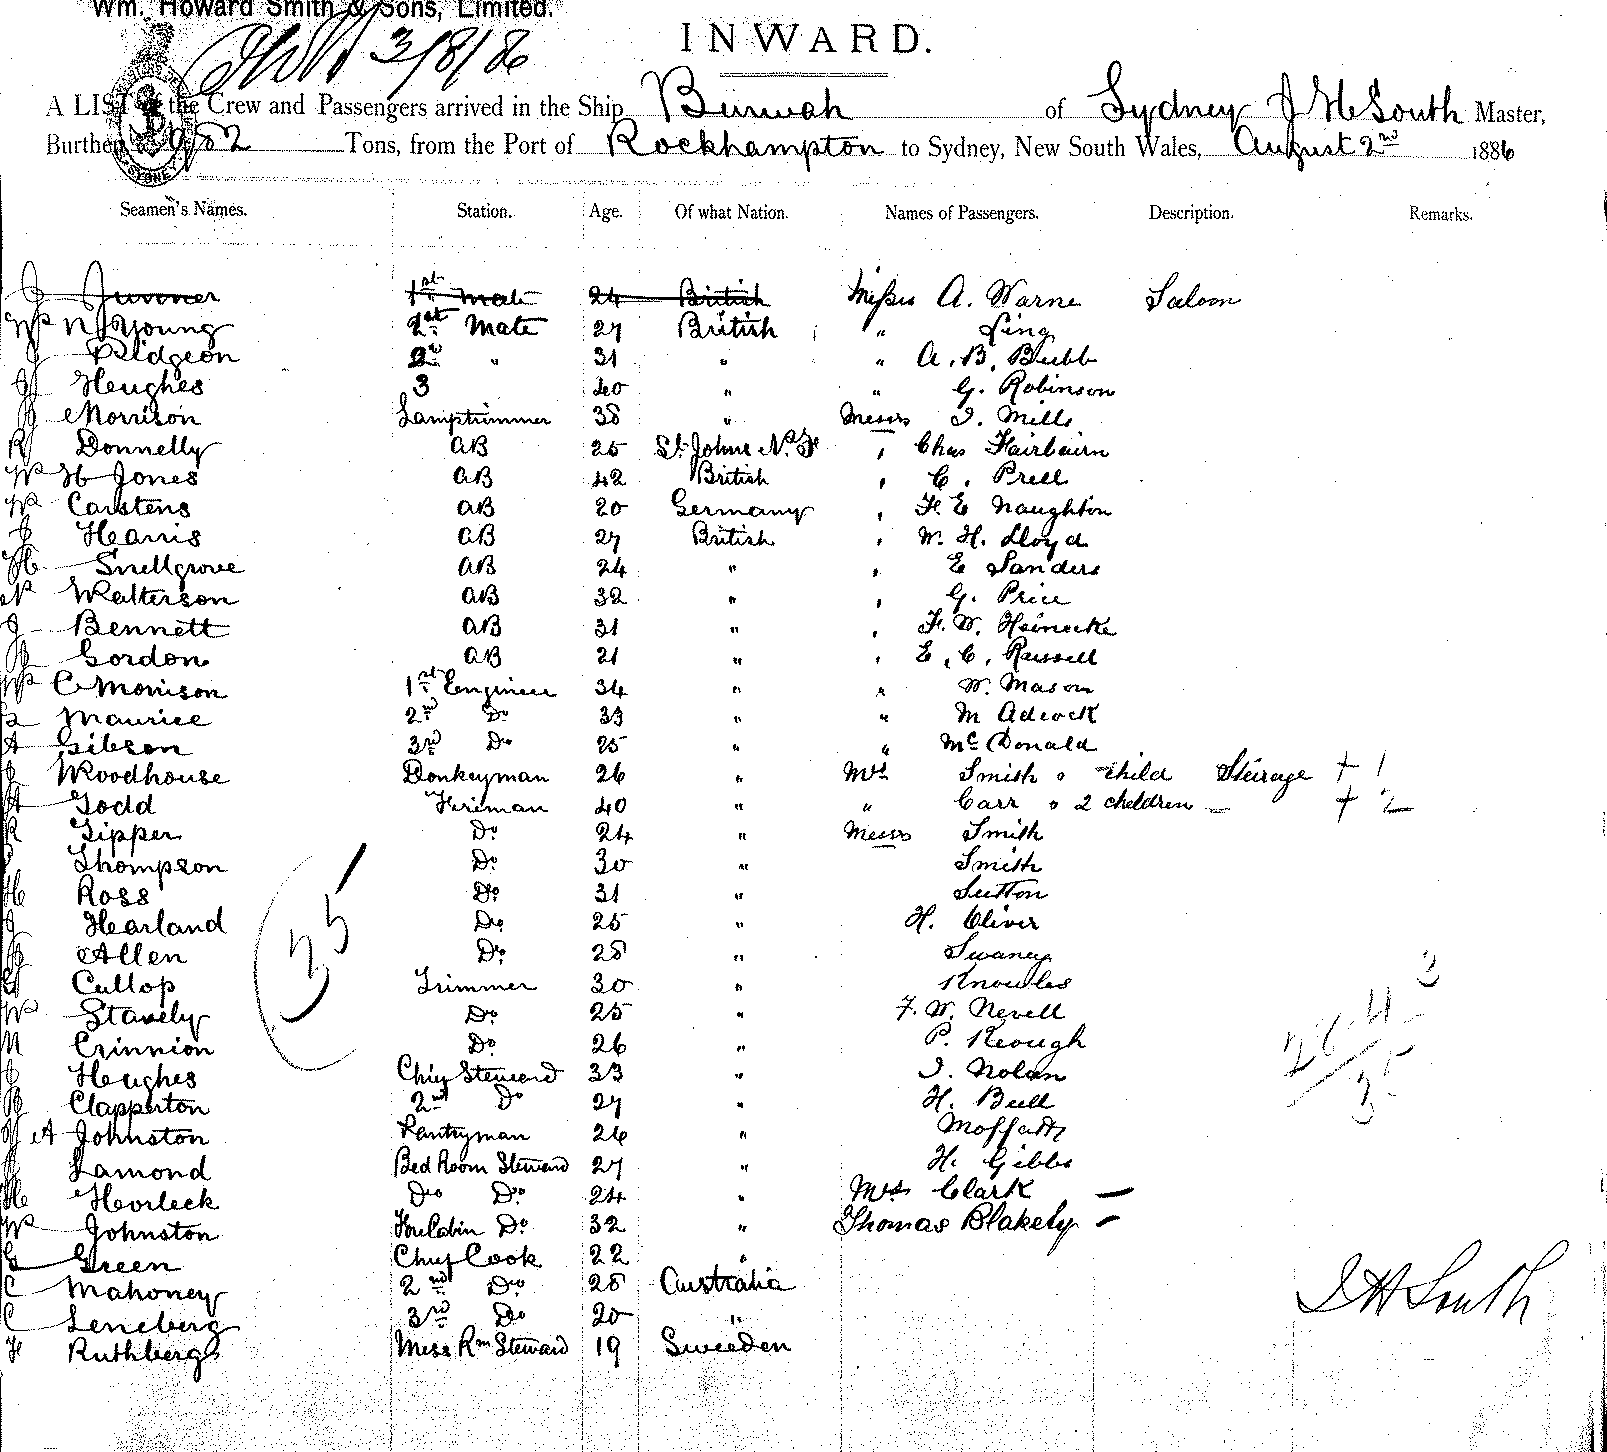 Wm. Howard Smith & Sons, Limited.
3/8/86
INWARD.
A LIST of the Crew and Passengers arrived in the Ship Burwah of Sydney J H South Master,
Burthen 982 Tons, from the Port of Rockhampton to Sydney, New South Wales, August 2nd 1886
Seamen's Names. Station. Age. Of what Nation. Names of Passengers. Description. Remarks.
1st Mate 24 British Misses A. Warne Saloon
Wm N Young 1st Mate 27 British " King
J Pidgeon 2nd " 31 " " A. B. Bubb
Heughes 3 40 " " G. Robinson
Morrison Lamptrimmer 38 " Messrs J. Mills
R Donnelly AB 25 St Johns N. F " Chas Fairbairn
Wm H Jones AB 42 British " C. Prell
Wm Carstens AB 20 Germany " F. E Naughton
J Harris AB 27 British " W. H. Lloyd
H Snellgrove AB 24 " " E Sanders
Watterson AB 32 " " G. Price
J Bennett AB 31 " " F. W. Heinecke
Gordon AB 21 " " E. C. Russell
Wm C Morrison 1st Engineer 34 " " W. Mason
Maurice 2nd Do 33 " " M Adcock
A Gibson 3rd Do 25 " " McDonald
J Woodhouse Donkeyman 26 " Mrs Smith & child Steirage + 1
A Todd Fireman 40 " " Carr & 2 children — + 2
R Tipper Do 24 " Messrs Smith
Thompson Do 30 " Smith
H Ross Do 31 " Sutton
J Hearland Do 25 " H. Oliver
Allen Do 28 " Swaney
Cullop Trimmer 30 " Knowles
Wm Stavely Do 25 " F. W. Nevell
M Crinnion Do 26 " P. Keough
J Heughes Chief Steward 33 " J. Nolan
Clapperton 2nd Do 27 " H. Bull
A Johnston Pantryman 26 " Moffatt
Lamond Bed Room Steward 27 " H. Gibbs
H Horleck Do Do 24 " Mrs Clark —
Wm Johnston Fore Cabin Do 32 " Thomas Blakely —
G Green Chief Cook 22 "
C Mahoney 2nd Do 28 Australia
C Leneberg 3rd Do 20 "
F Ruthberg Mess Rm Steward 19 Sweeden
35
3
26 4
35
J H South